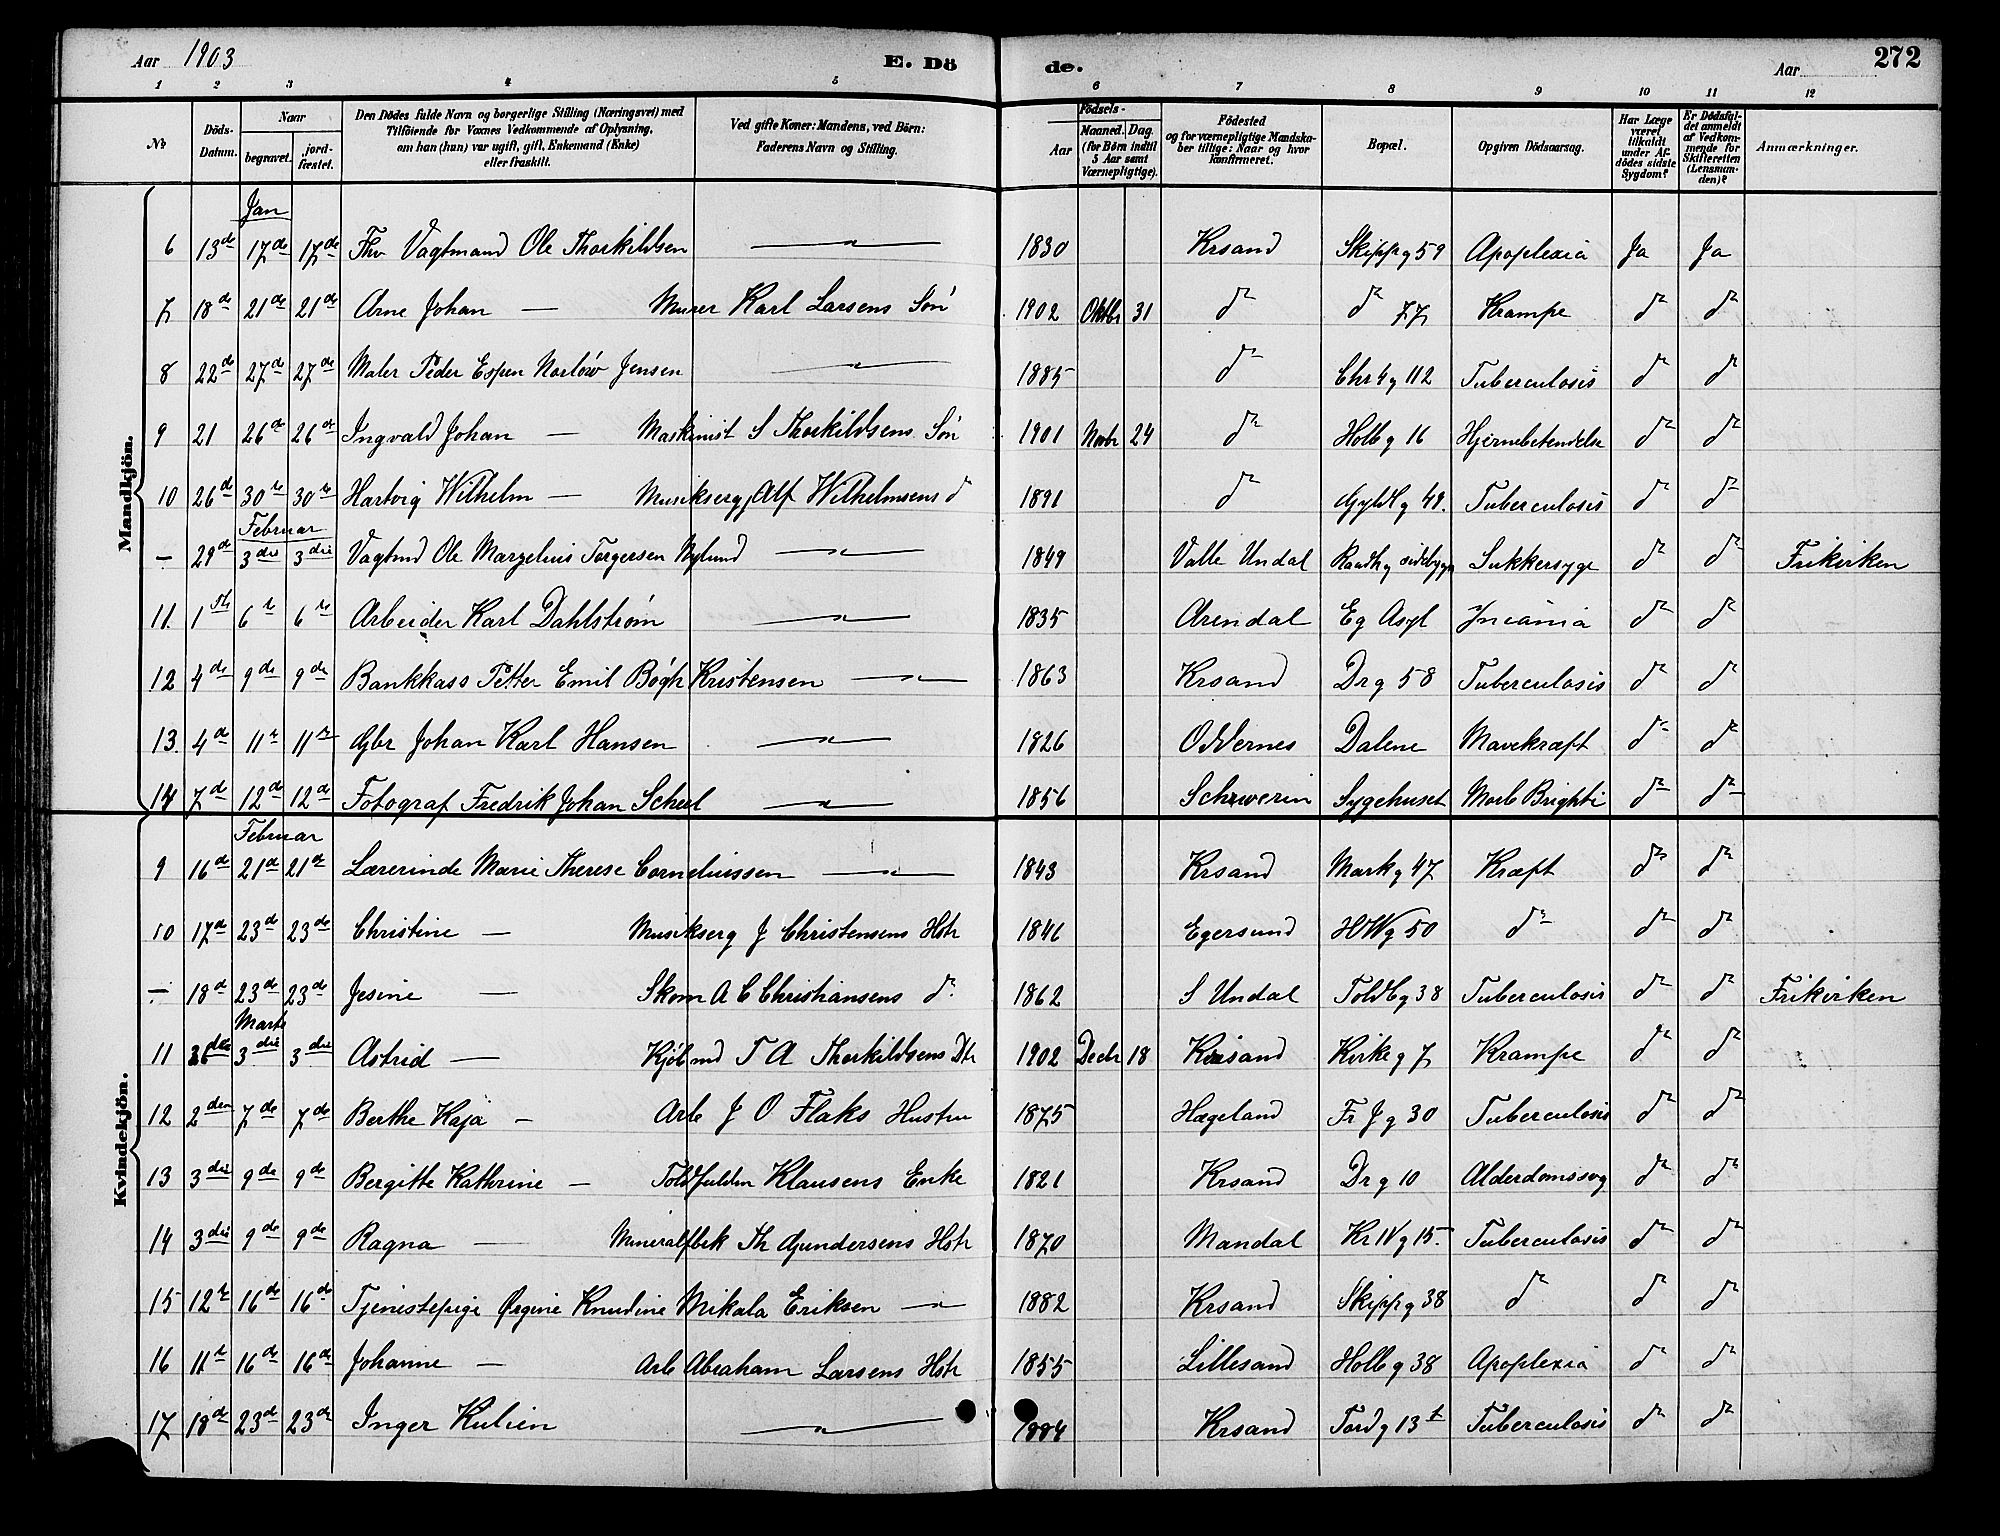 Aar 1903 E. Dö de. Aar 272
1 2 3 4 5 6 7 8 9 10 11 12
№ Döds-Datum. Naar begravet. jord-fæstet. Den Dödes fulde Navn og borgerlige Stilling (Næringsvei) med Tilföiende for Voxnes Vedkommende af Oplysning, om han (hun) var ugift, gift, Enkemand (Enke) eller fraskilt. Ved gifte Koner: Mandens, ved Börn: Faderens Navn og Stilling. Födsels- Aar Maaned. Dag. (for Börn indtil 5 Aar samt Værnepligtige). Födested og for værnepligtige Mandskaber tillige: Naar og hvor konfirmeret. Bopæl. Opgiven Dödsaarsag. Har Læge været tilkaldt under Afdödes sidste Sygdom? Er Dödsfaldet anmeldt af Vedkommende for Skifteretten (Lensmanden)? Anmærkninger.
Mandkjön.
Jan
6 13de 17de 17de Fhv Vagtmand Ole Thorkildsen — 1830 Krsand Skippg 59 Apoplexia Ja Ja
7 18de 21de 21de Arne Johan — Murer Karl Larsens Søn 1902 Oktbr 31 do do 77 Krampe do do
8 22de 27de 27de Maler Peder Espen Norløw Jensen — 1885 do Chr 4 g 112 Tuberculosis do do
9 21 26de 26de Ingvald Johan — Maskinist S Thorkildsens Søn 1901 Novbr 24 do Holbg 16 Hjernebetendelse do do
10 26d 30te 30te Hartvig Wilhelm — Musikserg Alf Wilhelmsens do 1891 do Gyldg 49. Tuberculosis do do
Februar
- 29d 3die 3die Vagtmd Ole Margelius Torgersen Nylund — 1849 Valle Undal Raadhg sidebygn Sukkersyge do do Frikirken
11. 1ste 6te 6te Arbeider Karl Dahlstrøm — 1835 Arendal Eg Asyl Incania do do
12 4de 9de 9de Bankkass Petter Emil Bøgh Kristensen — 1863 Krsand Drg 58 Tuberculosis do do
13. 4d 11te 11te Gbr Johan Karl Hansen — 1826 Oddernes Dalene Mavekræft do do
14 7de 12de 12de Fotograf Fredrik Johan Scheel — 1856 Schwerin Sygehuset Morb Brighti do do
Kvindekjön.
Februar
9 16d 21d 21d Lærerinde Marie Therese Corneliussen — 1843 Krsand Markg 47 Kræft do do
10 17d 23de 23de Christine — Musikserg J Christensens Hstr 1846 Egersund HWg 50 do do do
- 18d 23de 23de Jesine — Skom A C Christiansens do 1862 S Undal Toldbg 38 Tuberculosis do do Frikirken
Marts
11 3die 3die Astrid — Kjøbmd T A Thorkildsens Dtr 1902 Decbr 18 Krsand Kirkeg 7 Krampe do do
12 2den 7de 7de Berthe Kaja — Arb J O Flaks Hustru 1875 Hægeland Fr J g 30 Tuberculosis do do
13 3die 9de 9de Bergitte Kathrine — Toldfuldm Klausens Enke 1821 Krsand Drg 10 Alderdomssvag do do
14 3die 9de 9de Ragna — Mineralfbrk Th Gundersens Hstr 1870 Mandal Kr IV g 15. Tuberculosis do do
15 12te 16de 16de Tjenestepige Ørgine Knudine Mikala Eriksen — 1882 Krsand Skippg 38 do do do
16 11te 16de 16de Johanne — Arb Abraham Larsens Hstr 1855 Lillesand Holbg 38 Apoplexia do do
17 18de 23de 23de Inger Kulien — 1884 Krsand Tordg 13 Tuberculosis do do